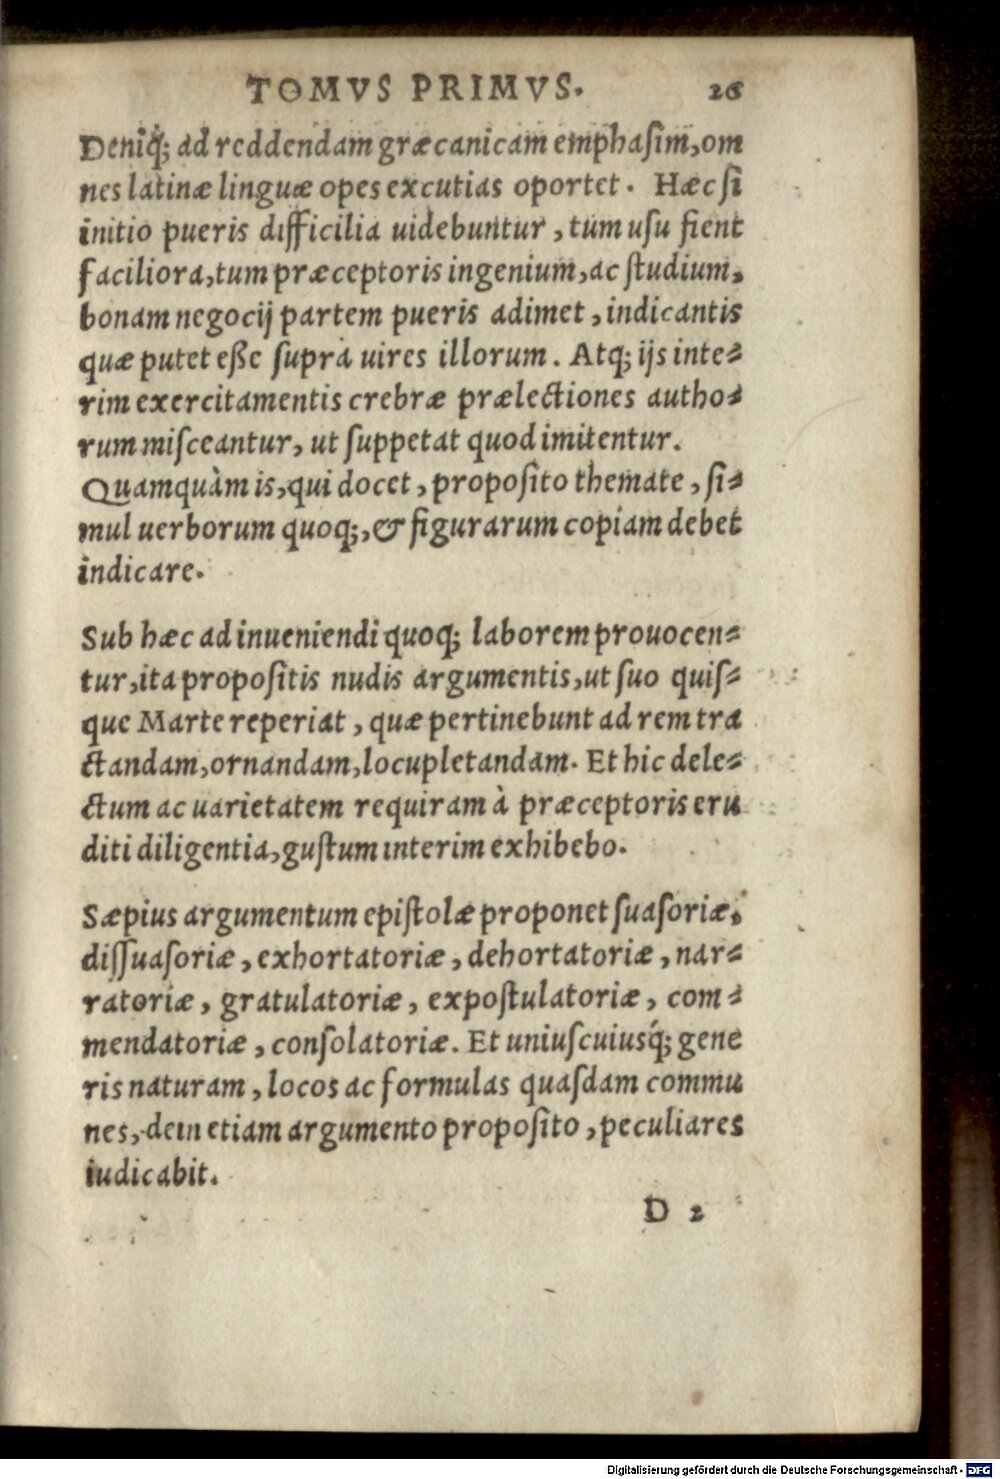 TOMVS PRIMVS. 26
Deniq́; ad reddendam græcanicam emphasim, om
nes latinæ linguæ opes excutias oportet. Hæc si
initio pueris difficilia uidebuntur, tum usu fient
faciliora, tum præceptoris ingenium, ac studium,
bonam negocij partem pueris adimet, indicantis
quæ putet eße supra uires illorum. Atq; ijs inte-
rim exercitamentis crebræ prælectiones autho-
rum misceantur, ut suppetat quod imitentur.
Quamquàm is, qui docet, proposito themate, si-
mul uerborum quoq;, & figurarum copiam debet
indicare.
Sub hæc ad inueniendi quoq; laborem prouocen-
tur, ita propositis nudis argumentis, ut suo quis-
que Marte reperiat, quæ pertinebunt ad rem tra
ctandam, ornandam, locupletandam. Et hic dele-
ctum ac uarietatem requiram à præceptoris eru
diti diligentia, gustum interim exhibebo.
Sæpius argumentum epistolæ proponet suasoriæ,
dissuasoriæ, exhortatoriæ, dehortatoriæ, nar-
ratoriæ, gratulatoriæ, expostulatoriæ, com-
mendatoriæ, consolatoriæ. Et uniuscuiusq́; gene
ris naturam, locos ac formulas quasdam commu
nes, dein etiam argumento proposito, peculiares
iudicabit.
D 2
Digitalisierung gefördert durch die Deutsche Forschungsgemeinschaft - DFG